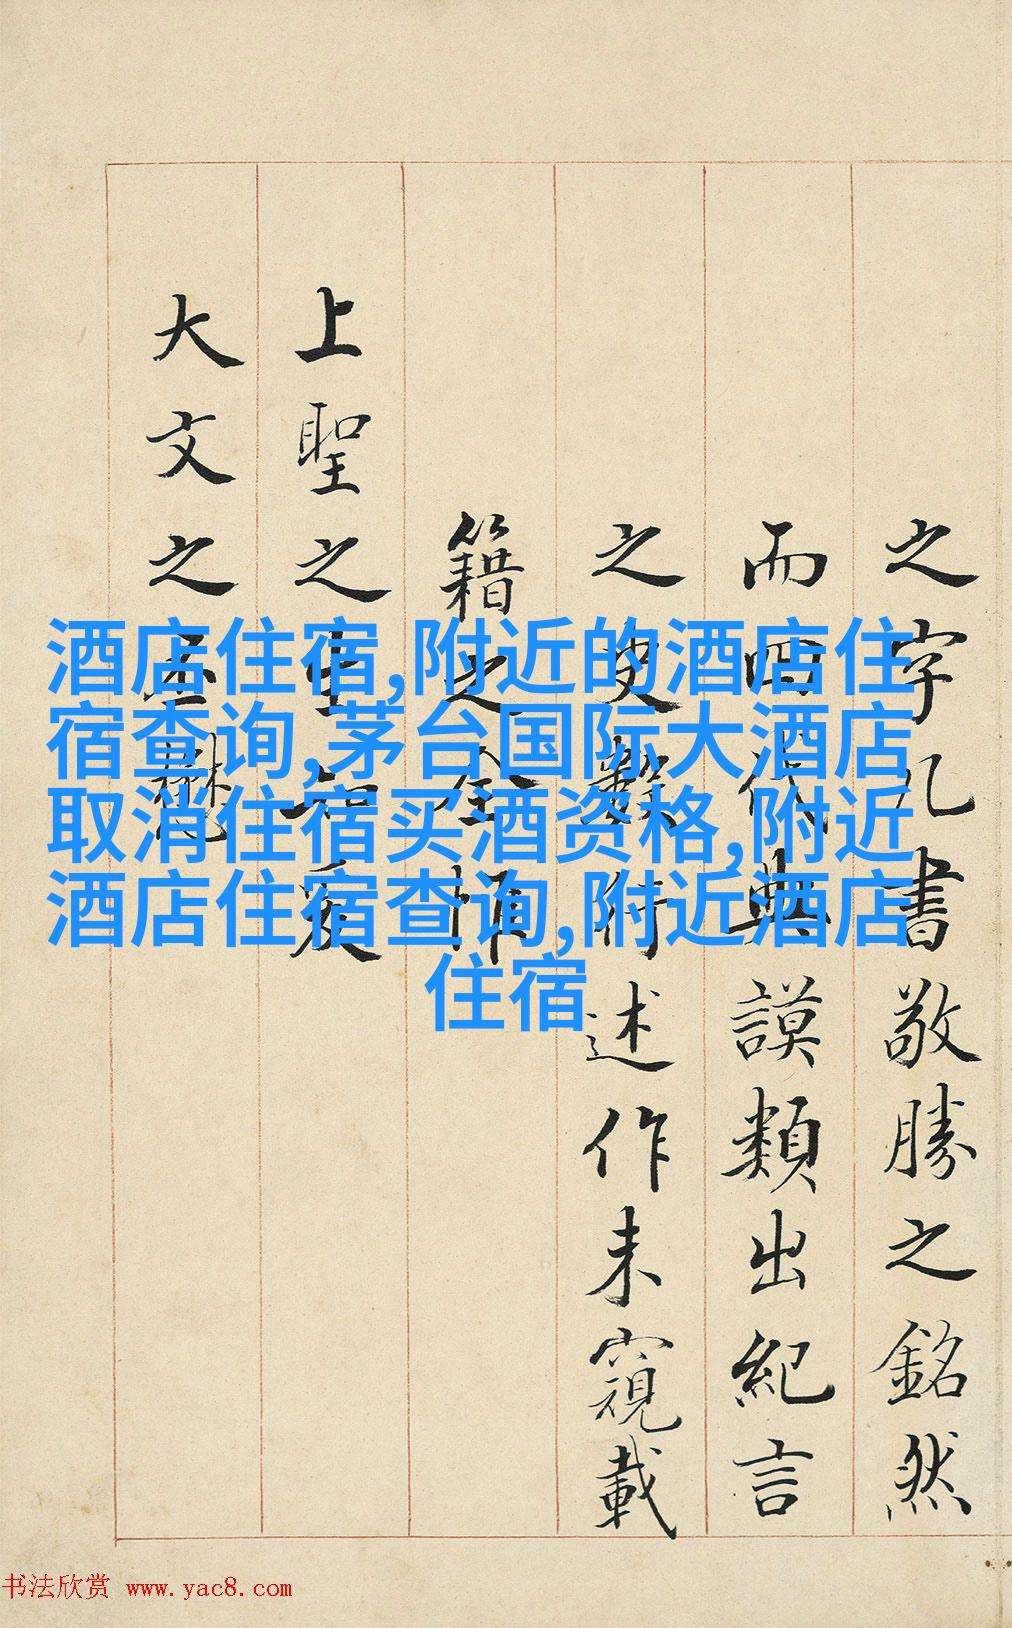 之字几書敬勝之銘然
而四代典謨類出紀言
之數述作未窺載
籍之全
上聖之
大文之懋
酒店住宿,附近的酒店住
宿查询,茅台国际大酒店
取消住宿买酒资格,附近
酒店住宿查询,附近酒店
住宿
书法欣赏 www.yac8.com